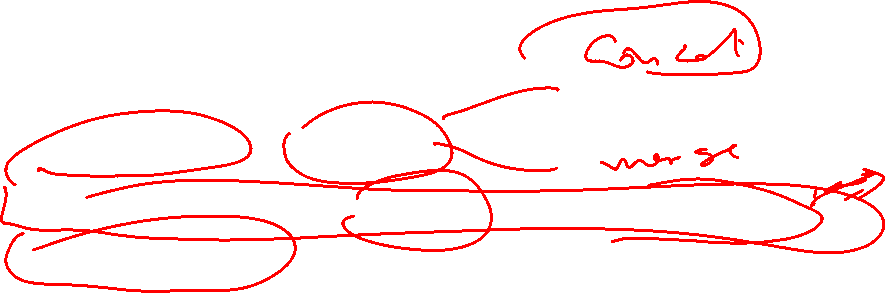 concat
merge